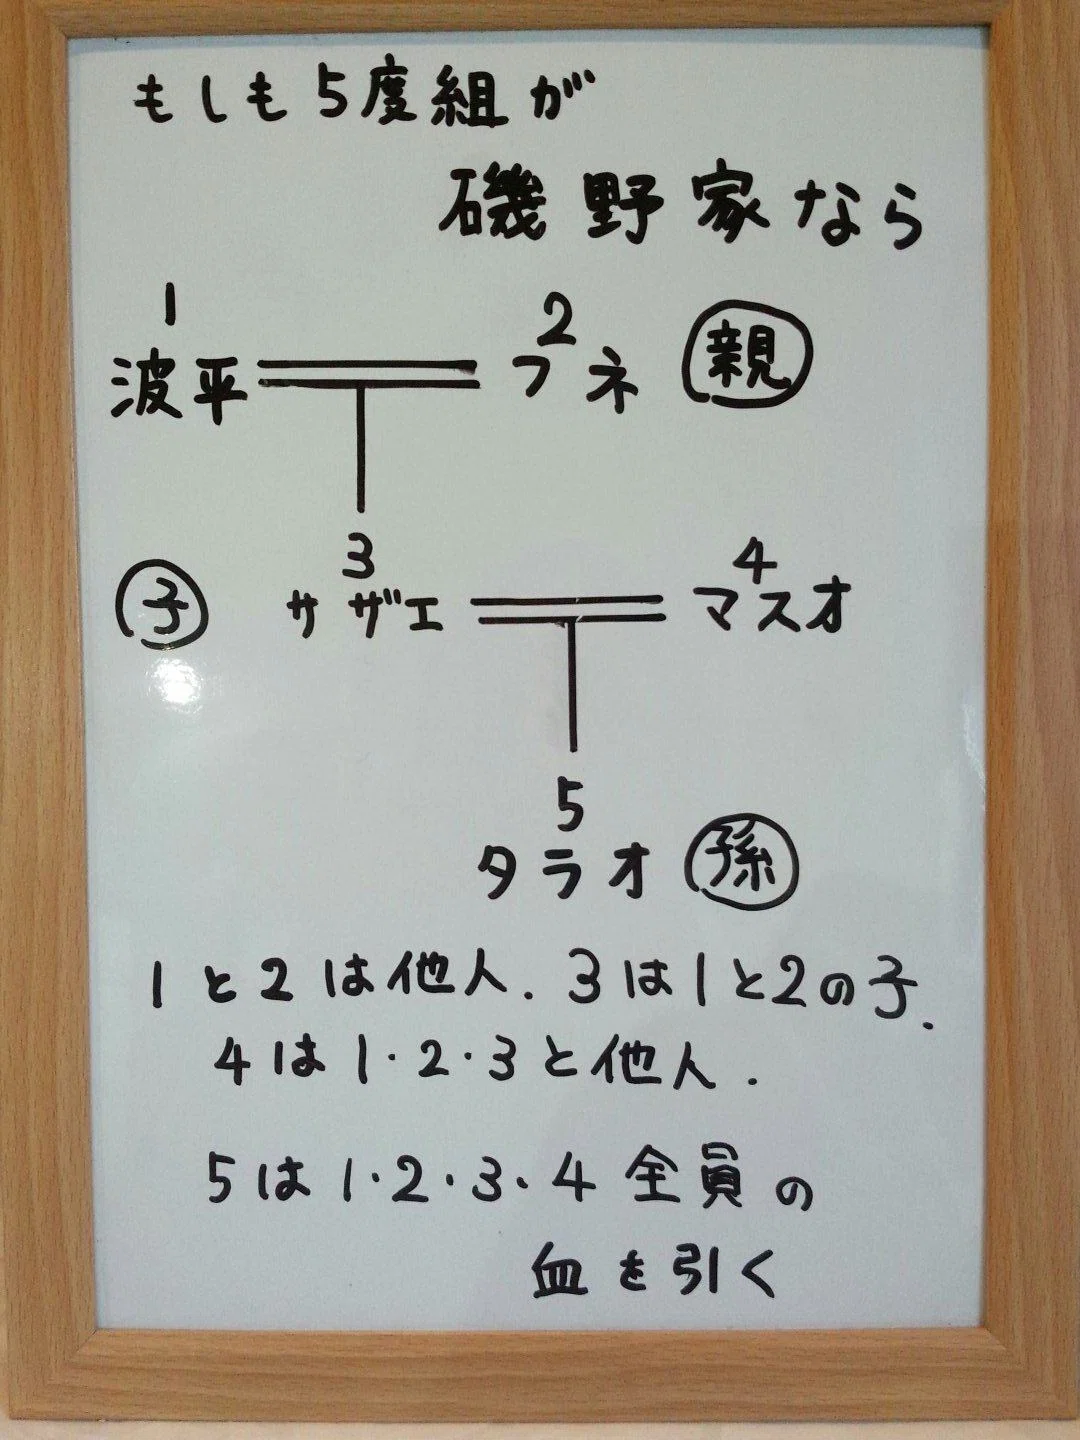 もしも5度組が
磯野家なら
1
波平
2
フネ
親
子
3
サザエ
4
マスオ
5
タラオ
孫
1と2は他人.3は1と2の子.
4は1・2・3と他人.
5は1・2・3・4全員の
血を引く